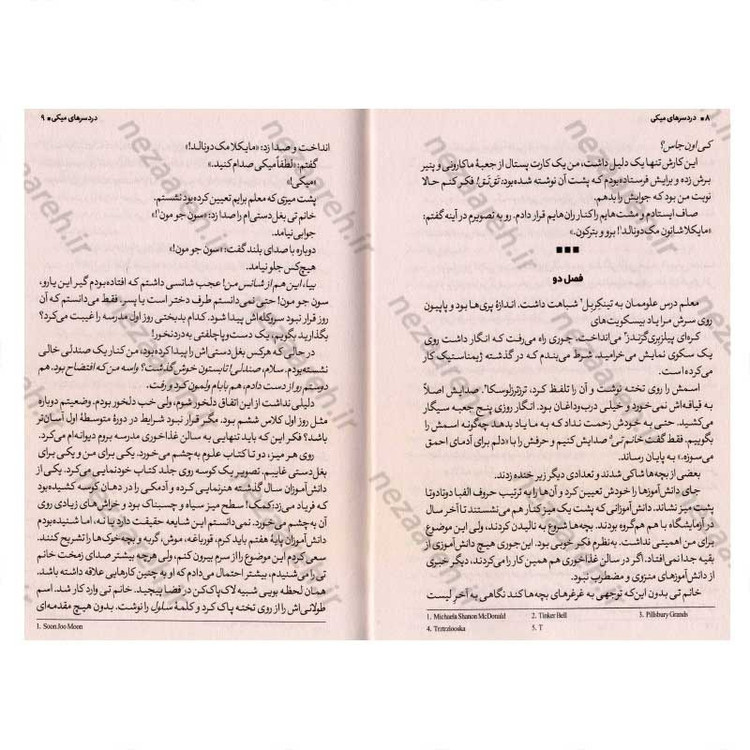 ۸ ■ دردسرهای میکی
کی اون جاس؟
این کارش تنها یک دلیل داشت، من یک کارت پستال از جعبهٔ ماکارونی و پنیر
برش زده و برایش فرستاده بودم که پشت آن نوشته شده بود: تق تق! فکر کنم حالا
نوبت من بود که جوابش را بدهم.
صاف ایستادم و مشت‌هایم را کنار ران‌هایم قرار دادم. رو به تصویرم در آینه گفتم:
«مایکلا شانون مک‌دونالد¹! برو و بترکون.»
■■■
فصل دو
معلم درس علوممان به تینکربل² شباهت داشت. اندازهٔ پری‌ها بود و پاپیون
روی سرش مرا یاد بیسکویت‌های
کره‌ای پیلزبری گرندز³ می‌انداخت. جوری راه می‌رفت که انگار داشت روی
یک سکوی نمایش می‌خرامید. شرط می‌بندم که در گذشته ژیمناستیک کار
می‌کرده است.
اسمش را روی تخته نوشت و آن را تلفظ کرد، ترتزرلوسکا⁴. صدایش اصلاً
به قیافه‌اش نمی‌خورد و خیلی درب‌وداغان بود. انگار روزی پنج جعبه سیگار
می‌کشید. حتی به خودش زحمت نداد که به ما یاد بدهد چگونه اسمش را
بگوییم. فقط گفت خانم تی⁵ صدایش کنیم و حرفش را با «دلم برای آدمای احمق
می‌سوزه.» به پایان رساند.
بعضی از بچه‌ها شاکی شدند و تعدادی دیگر زیر خنده زدند.
جای دانش‌آموزها را خودش تعیین کرد و آن‌ها را به ترتیب حروف الفبا دوتا دوتا
پشت میز نشاند. دانش‌آموزانی که پشت یک میز کنار هم می‌نشستند تا آخر سال
در آزمایشگاه با هم هم‌گروه بودند. بچه‌ها شروع به نالیدن کردند، ولی این موضوع
برای من اهمیتی نداشت. به‌نظرم فکر خوبی بود. این‌جوری هیچ دانش‌آموزی از
بقیه جدا نمی‌افتاد. اگر در سالن غذاخوری هم همین کار را می‌کردند، دیگر خبری
از دانش‌آموزهای منزوی و مضطرب نبود.
خانم تی بدون این‌که توجهی به غرغرهای بچه‌ها کند نگاهی به آخر لیست
1. Michaela Shanon McDonald 2. Tinker Bell 3. Pillsbury Grands
4. Trztrzlooska 5. T
دردسرهای میکی ■ ۹
انداخت و صدا زد: «مایکلا مک‌دونالد!»
گفتم: «لطفاً میکی صدام کنید.»
«میکی!»
پشت میزی که معلم برایم تعیین کرده بود نشستم.
خانم تی بغل‌دستی‌ام را صدا زد: «سون جو مون¹!»
جوابی نیامد.
دوباره با صدای بلند گفت: «سون جو مون!»
هیچ‌کس جلو نیامد.
بیا، این هم از شانس من! عجب شانسی داشتم که افتاده بودم گیر این یارو،
سون جو مون! حتی نمی‌دانستم طرف دختر است یا پسر. فقط می‌دانستم که آن
روز قرار نبود سروکله‌اش پیدا شود. کدام بدبختی روز اول مدرسه را غیبت می‌کرد؟
بگذارید بگویم، یک دست‌وپاچلفتی به‌دردنخور!
در حالی که هرکس بغل‌دستی‌اش را پیدا کرده بود، من کنار یک صندلی خالی
نشسته بودم. سلام، صندلی! تابستون خوش گذشت؟ واسه من که افتضاح بود. هم
دوستم رو از دست دادم، هم بابام ولمون کرد و رفت.
دلیلی نداشت از این اتفاق دلخور شوم، ولی خب دلخور بودم. وضعیتم دوباره
مثل روز اول کلاس ششم بود. مگر قرار نبود شرایط در دورهٔ متوسطهٔ اول آسان‌تر
باشد؟ فکر این که باید تنهایی به سالن غذاخوری مدرسه بروم دیوانه‌ام می‌کرد.
روی هر میز، دو تا کتاب علوم به‌چشم می‌خورد. یکی برای من و یکی برای
بغل‌دستی غایبم. تصویر یک کوسه روی جلد کتاب خودنمایی می‌کرد. یکی از
دانش‌آموزان سال گذشته هنرنمایی کرده و آدمکی را در دهان کوسه کشیده بود
که فریاد می‌زد: کمک! سطح میز سیاه و چسبناک بود و خراش‌های زیادی روی
آن به‌چشم می‌خورد. نمی‌دانم این شایعه حقیقت دارد یا نه، اما شنیده بودم
دانش‌آموزان پایهٔ هفتم باید کرم، قورباغه، موش، گربه و بچه‌خوک‌ها را تشریح کنند.
سعی کردم این موضوع را از سرم بیرون کنم، ولی هرچه بیشتر صدای زمخت خانم
تی را می‌شنیدم، بیشتر احتمال می‌دادم که او به چنین کارهایی علاقه داشته باشد.
همان لحظه بویی شبیه لاک‌پاک‌کن در فضا پیچید. خانم تی وارد کار شد. اسم
طولانی‌اش را از روی تخته پاک کرد و کلمهٔ سلول را نوشت. بدون هیچ مقدمه‌ای
1. Soon Joo Moon
nezaareh.ir
nezaareh.ir
nezaareh.ir
nezaareh.ir